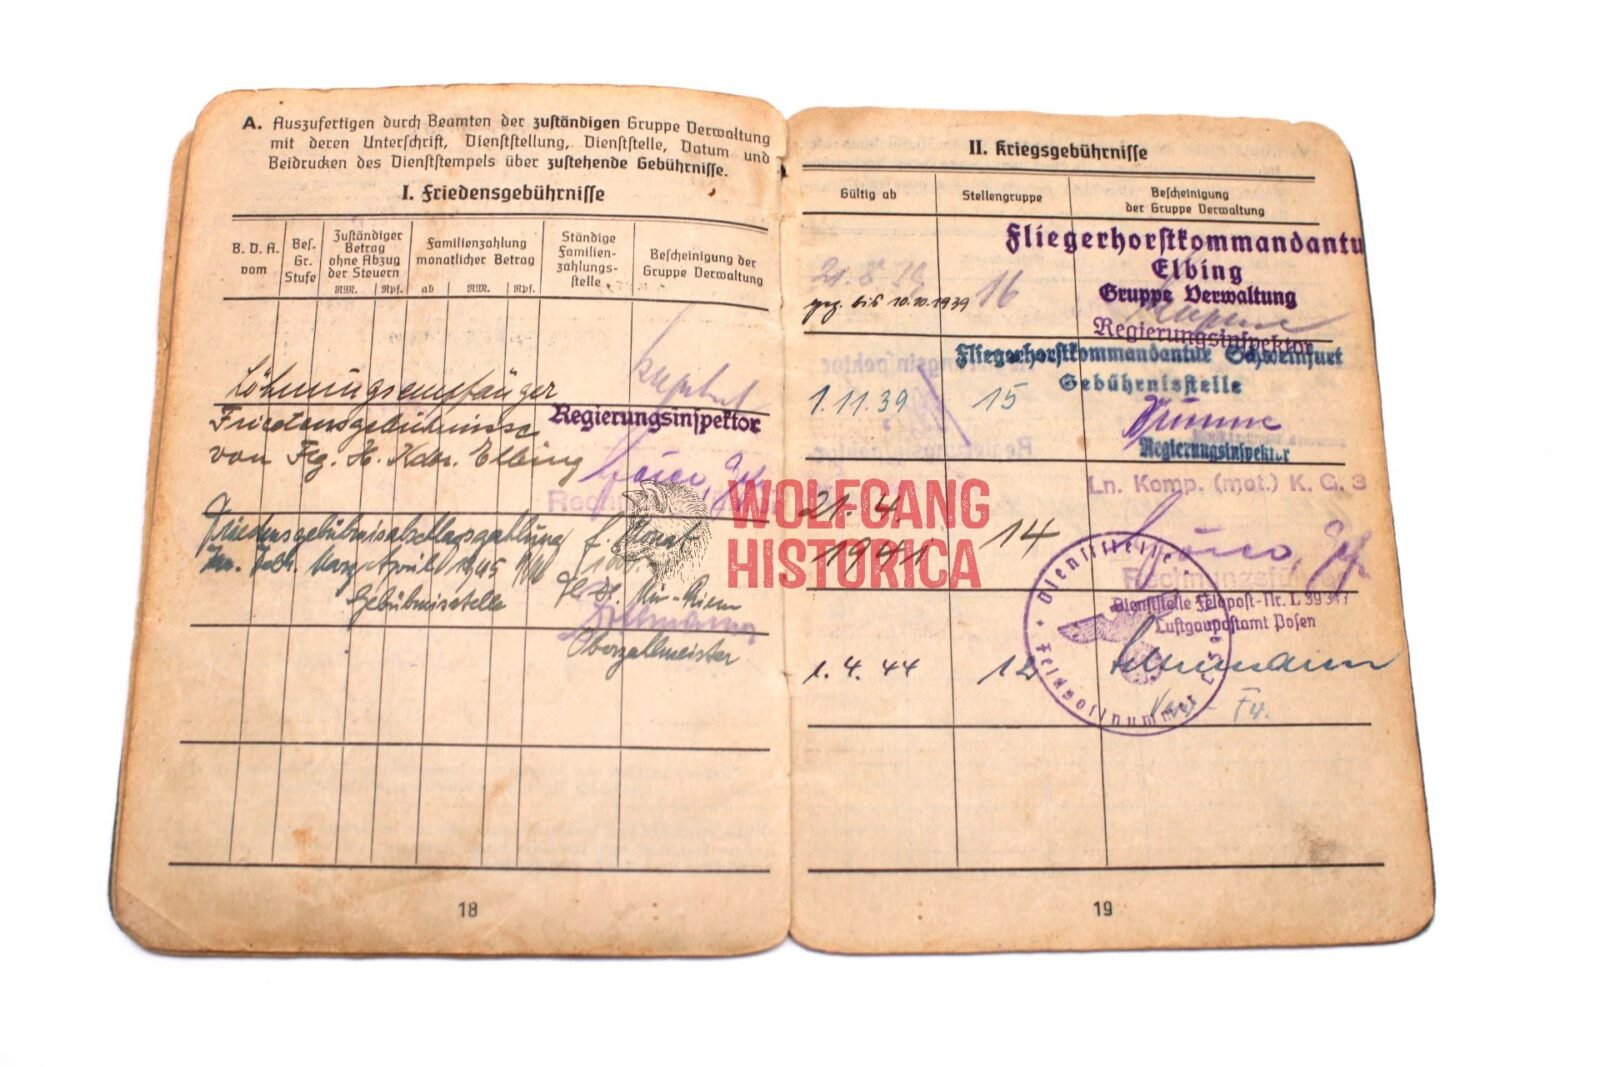 A. Auszufertigen durch Beamten der zuständigen Gruppe Verwaltung
mit deren Unterschrift, Dienststellung, Dienststelle, Datum und
Beidrucken des Dienststempels über zustehende Gebührnisse.
I. Friedensgebührnisse
B. D. A.
vom
Bes.
Gr.
Stufe
Zuständiger
Betrag
ohne Abzug
der Steuern
RM. Rpf.
Familienzahlung
monatlicher Betrag
ab RM. Rpf.
Ständige
Familien-
zahlungs-
stelle
Bescheinigung der
Gruppe Verwaltung
Löhnungsempfänger
Regierungsinspektor
Friedensgebührnisse
von Flg. H. Kdtr. Elbing
Friedensgebührnisabschlagzahlung f. Monat
April 1945
Gebührnisstelle
Oberzahlmeister
18
II. Kriegsgebührnisse
Gültig ab
Stellengruppe
Bescheinigung
der Gruppe Verwaltung
Fliegerhorstkommandantu
Elbing
Gruppe Verwaltung
Regierungsinspektor
16
gez. bis 10.10.1939
Fliegerhorstkommandantur Schweinfurt
Gebührnisstelle
1.11.39 15
Regierungsinspektor
Ln. Komp. (mot.) K. G. 3
21. 4.
1941
14
Rechnungsführer
Dienststelle
Feldpostnummer
Dienststelle Feldpost-Nr. L
Luftgaupostamt Posen
1. 4. 44 12
19
WOLFGANG
HISTORICA